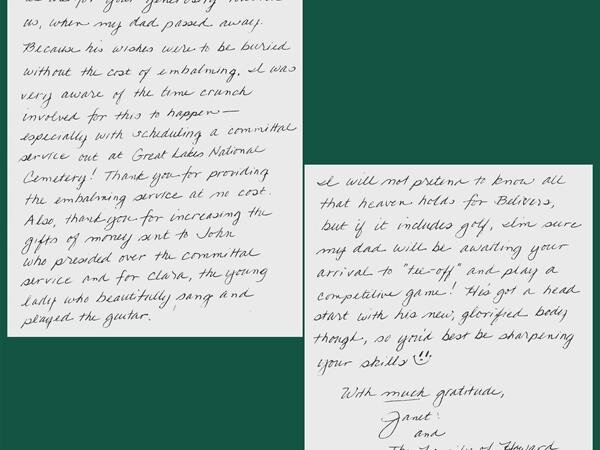 for your generosity
us, when my dad passed away.
Because his wishes were to be buried
without the cost of embalming, I was
very aware of the time crunch
involved for this to happen—
especially with scheduling a committal
service out at Great Lakes National
Cemetery! Thank you for providing
the embalming service at no cost.
Also, thank you for increasing the
gifts of money sent to John
who presided over the committal
service and for Clara, the young
lady who beautifully sang and
played the guitar.
I will not pretend to know all
that heaven holds for Belivers,
but if it includes golf, I'm sure
my dad will be awaiting your
arrival to "tee-off" and play a
competitive game! He's got a head
start with his new, glorified body
though, so you'd best be sharpening
your skills
With much gratitude,
Janet
and
The Family of Howard